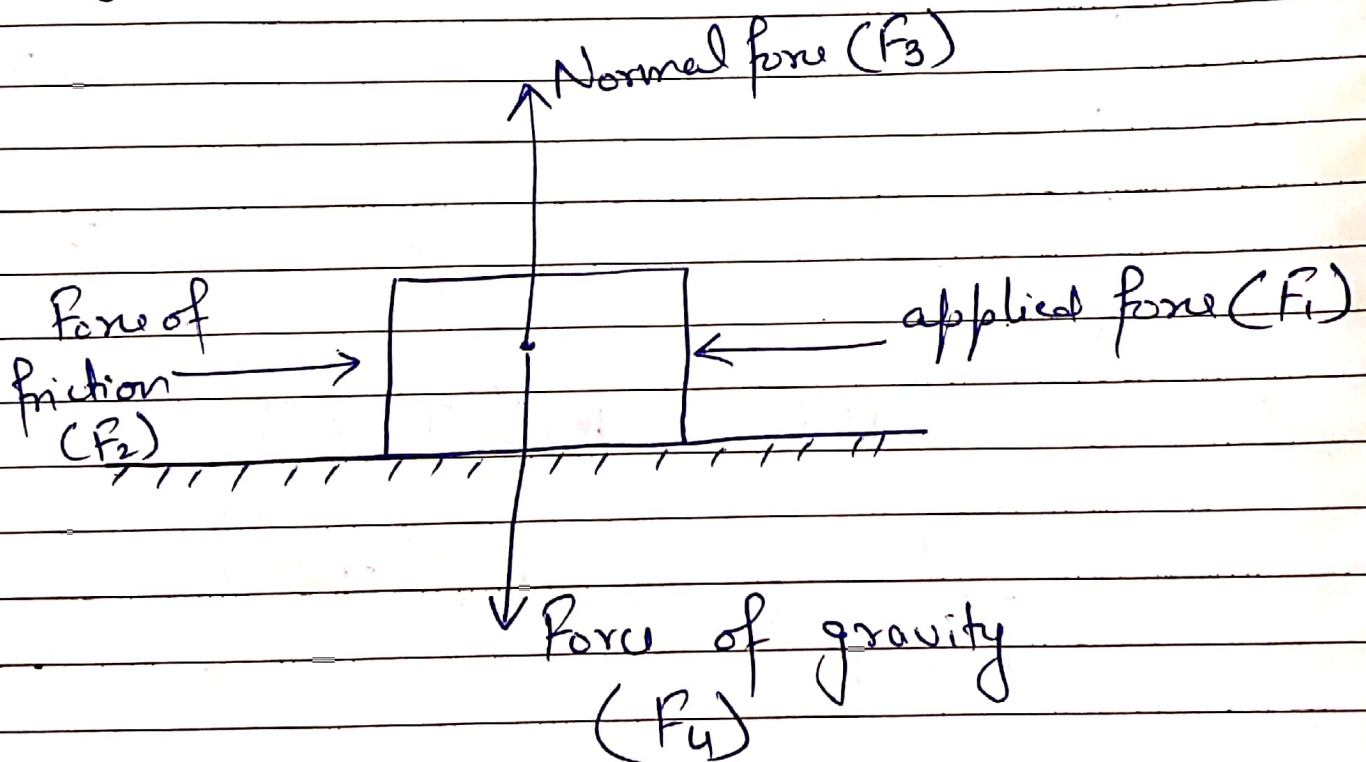 Normal force (F3)
Force of
friction
(F2)
applied force (F1)
Force of gravity
(F4)